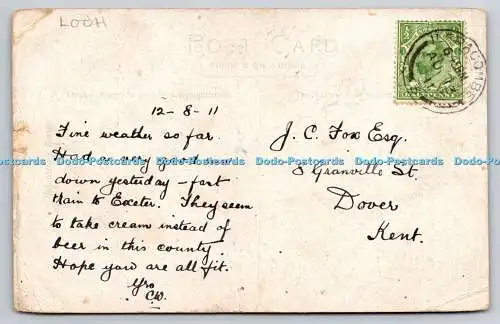 LOOH
POST CARD
ILFRACOMBE
12-8-11
Fine weather so far.
Had a very good run
down yesterday - fast
train to Exeter. They seem
to take cream instead of
beer in this county.
Hope you are all fit.
Yrs
C.W.
J. C. Fox Esq.
8 Granville St.
Dover
Kent.
Dodo-Postcards Dodo-Postcards Dodo-Postcards Dodo-Postcards Dodo-Postcards